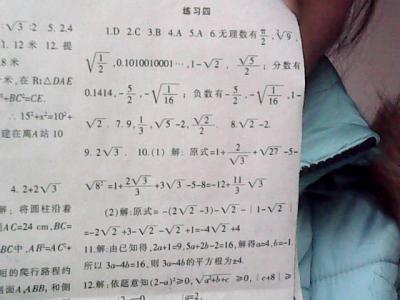 :√3:2 5. 2.4
1. 12 米 12. 提
米,在 Rt△DAE
²+BC²=CE.
∴ 15²+x²=10²+
建在离A站 10
4. 2+2√3
解:将圆柱沿着
AC=24 cm,BC=
BC中,AB²=AC²+
短的爬行路程约
面A₁ABB₁ 和侧
练习四
1.D 2.C 3.B 4.A 5.A 6.无理数有 π/2,∛9,
√(1/2),0.1010010001⋯,1-√2,√5/2;分数有
0.1414,-5/2,-√(1/16);负数有-5/2,-√(1/16),1-
√2. 7. 9,1/3,√5-2,√2/2. 8.√2-2.
9. 2√3. 10.(1) 解:原式=1+2/√3+√27-5-
√8²=1+2√3/3+3√3-5-8=-12+11/3√3
(2)解:原式= -(2√2-3)-√2-|1-√2|
=-2√2+3-√2-√2+1=-4√2+4
11.解:由已知得,2a+1=9,5a+2b-2=16,解得a=4,b=-1.
所以 3a-4b=16,则 3a-4b的平方根为±4.
12.解:依题意知(2-a)²≥0,√(a²+b+c)≥0,|c+8|≥